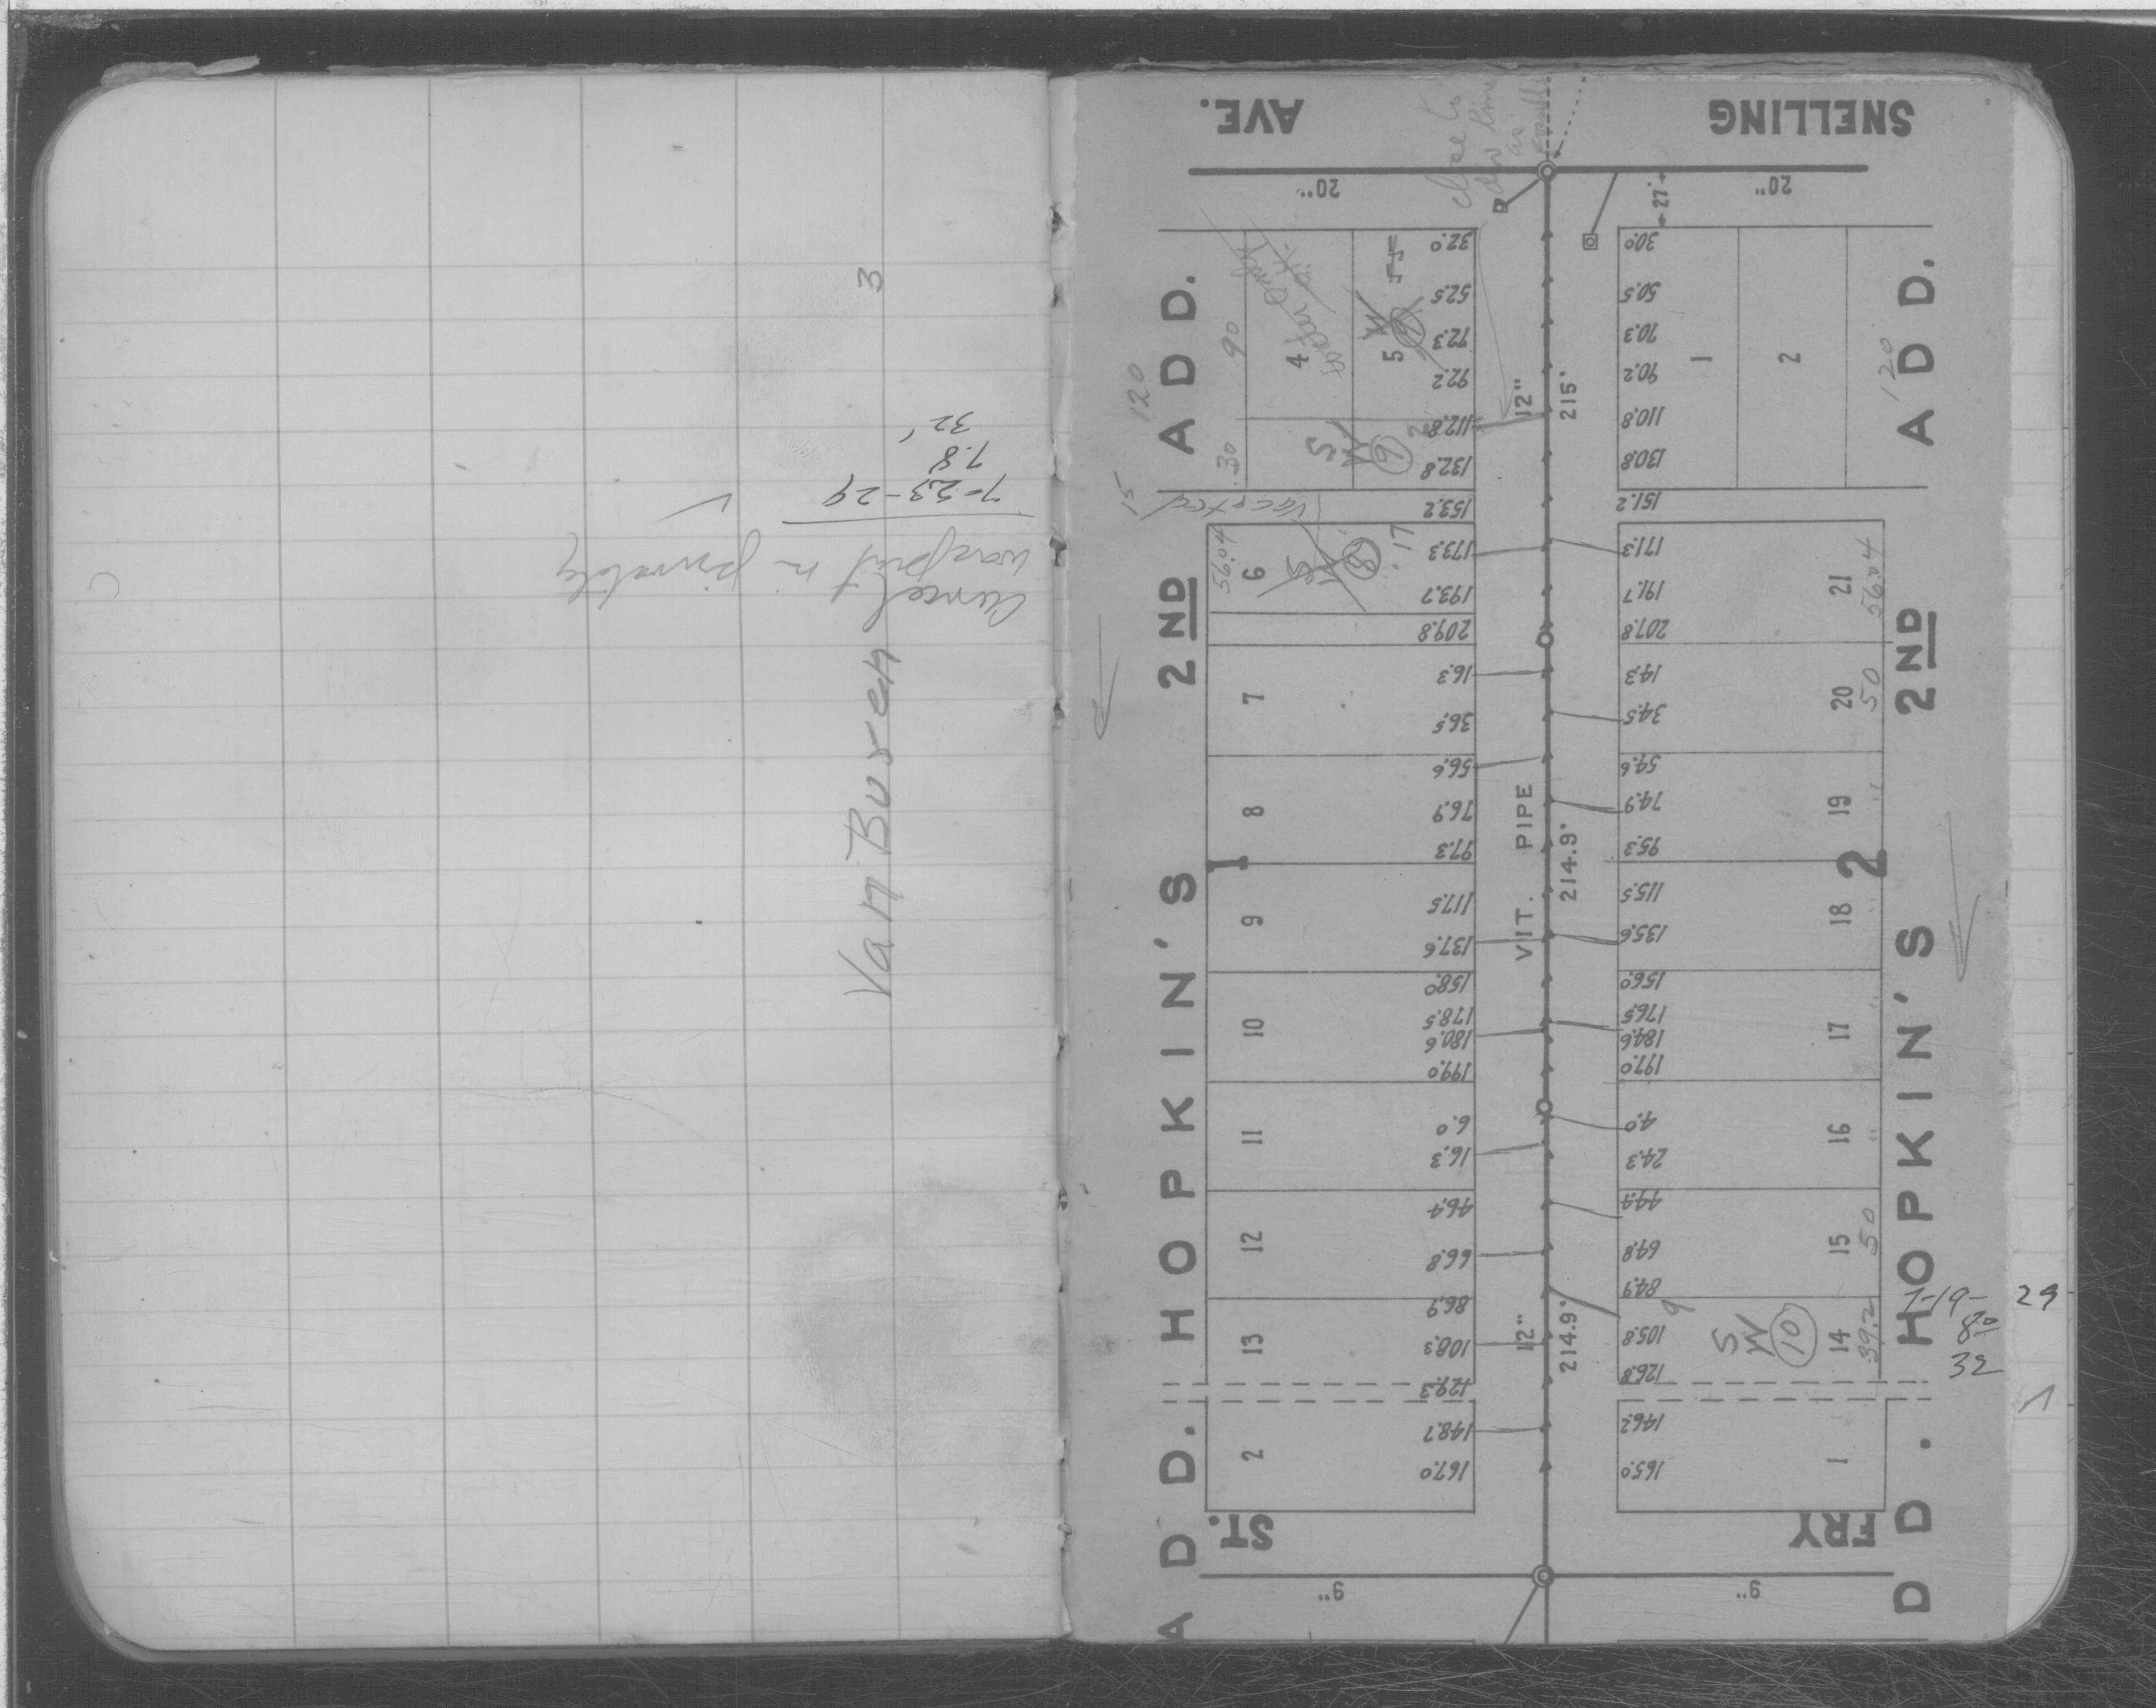 3
32'
7.8
7-23-29
Cancel
was put in privately
Van Buren
SNELLING AVE.
close to
div line
as
possible
20"
20"
27'
HOPKIN'S 2ND ADD.
120
15
90
.30
4
5
55
32.0
52.5
72.3
92.2
112.8
132.8
153.2
S
W
9
Vacated
12"
215'
30.0
50.5
70.3
90.2
110.8
130.8
151.2
1
2
120
HOPKIN'S 2ND ADD.
56.04
6
S
W
8
.17
173.3
193.7
209.8
171.3
191.7
207.8
21
56.04
7
16.3
36.5
14.3
34.5
20
50
8
56.6
76.9
97.3
VIT. PIPE
214.9'
54.6
74.9
95.3
19
1
2
9
117.5
137.6
115.5
135.6
18
10
158.0
178.5
180.6
199.0
156.0
176.5
184.6
197.0
17
11
6.0
16.3
4.0
24.3
16
12
46.4
66.8
44.4
64.8
84.9
15
50
13
86.9
108.3
129.3
12"
214.9'
105.8
126.8
9
S
W
10
14
39.2
7-19-29
8.0
32
2
148.7
167.0
146.2
165.0
1
FRY ST.
9"
9"
ADD.
ADD.